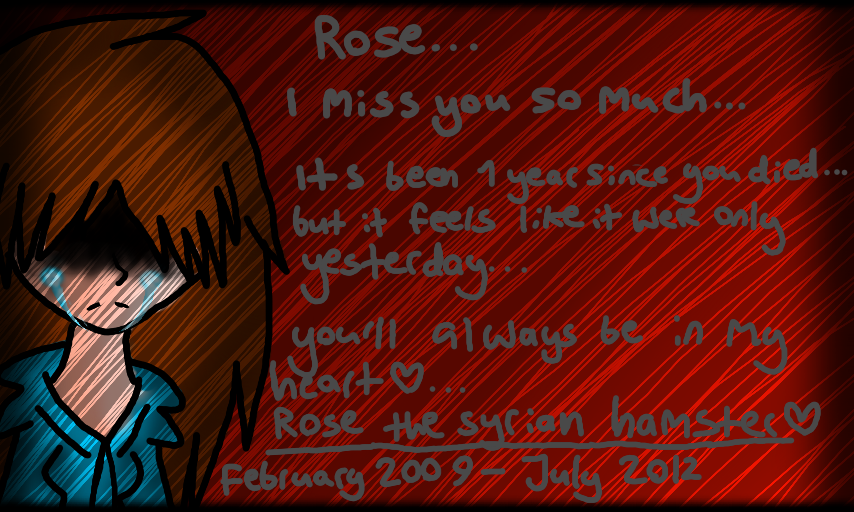 Rose...
I miss you so much...
It's been 1 year since you died...
but it feels like it were only
yesterday...
you'll always be in my
heart♡...
Rose the syrian hamster♡
February 2009 - July 2012